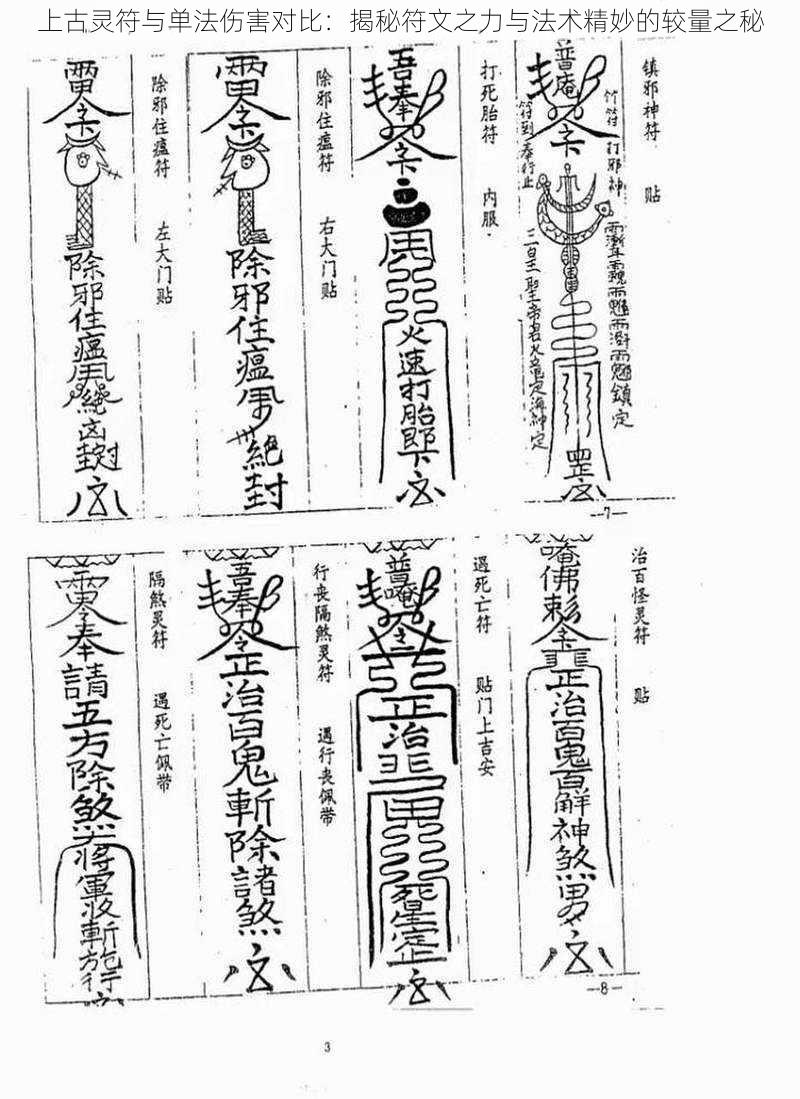 上古灵符与单法伤害对比：揭秘符文之力与法术精妙的较量之秘
镇邪神符 贴
普庵
竹符打邪神
符到奉行止
三皇聖帝君火竜定海神定
鎮定
罡
打死胎符 内服
吾奉
令
火速打胎即下
除邪住瘟符 右大门贴
令
除邪住瘟
絕封
除邪住瘟符 左大门贴
令
除邪住瘟
絕凶封
—7—
治百怪灵符 贴
唵佛敕令
正治百鬼百解神煞
遇死亡符 贴门上吉安
普唵
令
正治
死星定
行丧隔煞灵符 遇行丧佩带
吾奉
令
正治百鬼斬除諸煞
隔煞灵符 遇死亡佩带
奉請五方除煞
將軍
—8—
3